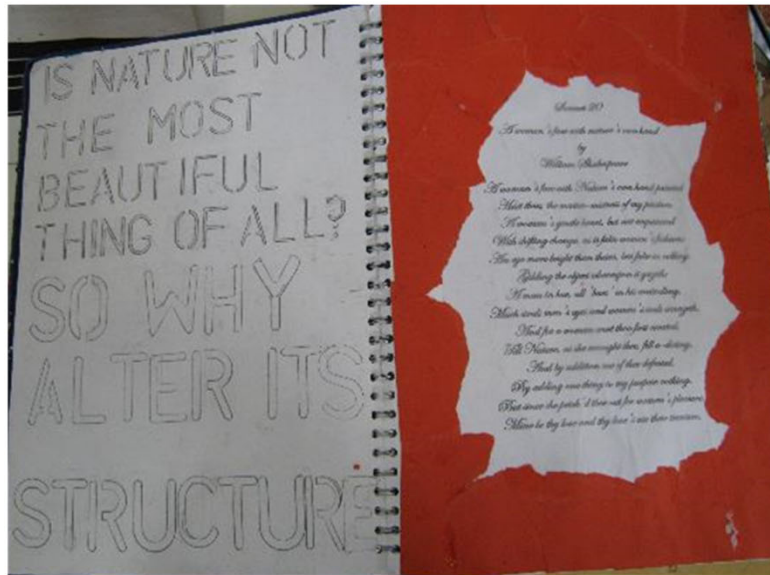 IS NATURE NOT
THE MOST
BEAUTIFUL
THING OF ALL?
SO WHY
ALTER ITS
STRUCTURE
Sonnet 20
A woman's face with nature's own hand
by
William Shakespeare
A woman's face with Nature's own hand painted
Hast thou, the master-mistress of my passion;
A woman's gentle heart, but not acquainted
With shifting change, as is false women's fashion;
An eye more bright than theirs, less false in rolling,
Gilding the object whereupon it gazeth;
A man in hue, all 'hues' in his controlling,
Much steals men's eyes and women's souls
And for a woman wert thou first created;
Till Nature, as she wrought thee, fell a-doting,
And by addition me of thee defeated,
By adding one thing to my purpose nothing.
But since she prick'd thee out for women's pleasure,
Mine be thy love and thy love's use their treasure.